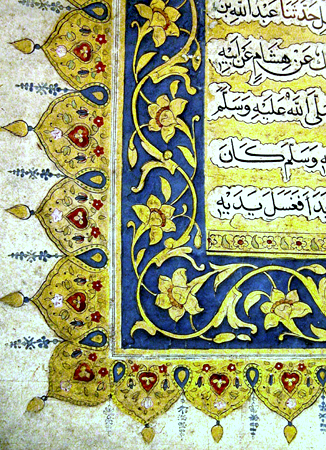 حدثنا عبدالله بن
عن هشام عن ابيه
لى الله عليه وسلم
وسلم كان
بدا فغسل يديه